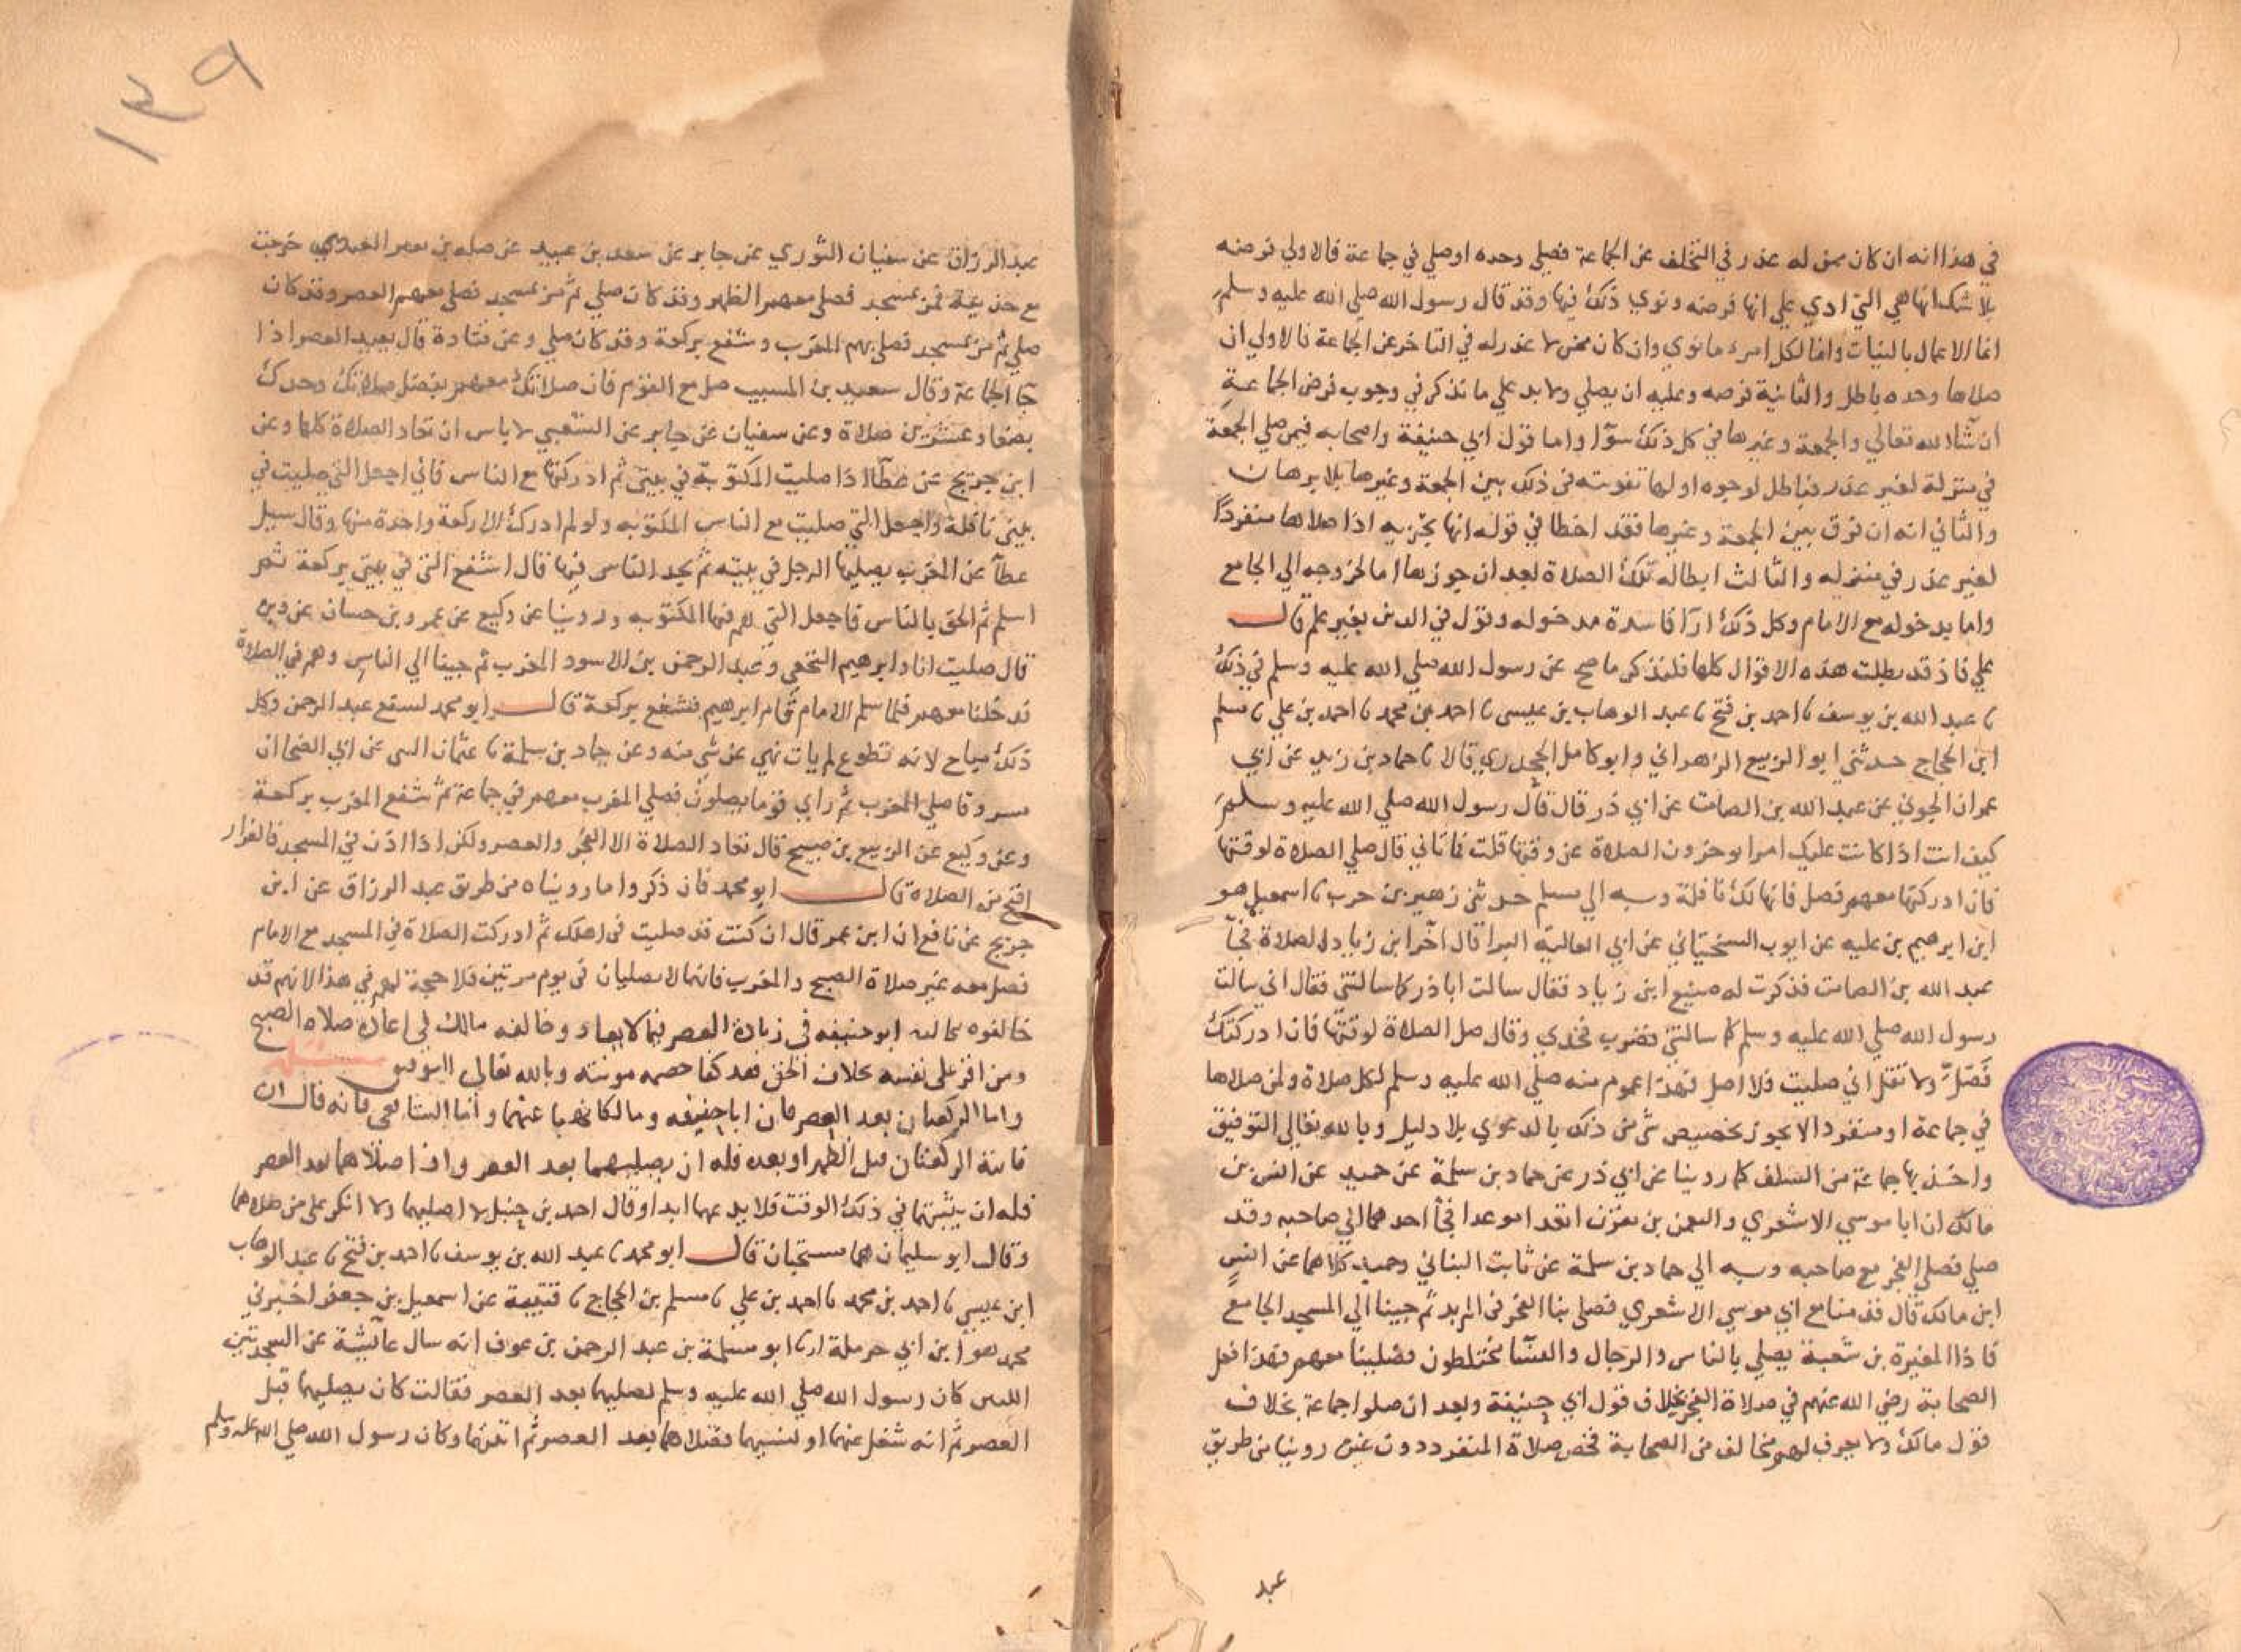 في هذا انه ان كان ممن له عذر في التخلف عن الجماعة فصلي وحده او صلي في جماعة فالاولي فرضه
بلا شك انها هي التي ادي علي انها فرضه ونوي ذلك فيها وقد قال رسول الله صلي الله عليه وسلم
انما الاعمال بالنيات وانما لكل امرء ما نوي وان كان ممن لا عذر له في التاخر عن الجماعة فالاولي ان
صلاها وحده باطل والثانية فرضه وعليه ان يصلي ولا بد علي ما نذكر في وجوب فرض الجماعة
ان شاء الله تعالي والجمعة وغيرها في كل ذلك سوآ واما قول ابي حنيفة واصحابه فيمن صلي الجمعة
في منزلة لغير عذر فباطل لوجوه اولها تفرقته في ذلك بين الجمعة وغيرها بلا برهان
والثاني انه ان فرق بين الجمعة وغيرها فقد اخطا في قوله انها تجزيه اذا صلاها منفردًا
لغير عذر في منزله والثالث ابطاله تلك الصلاة بعد ان جوزها اما لخروجه الي الجامع
واما بدخوله مع الامام وكل ذلك ارآ فاسدة مدخوله وقول في الدين بغير علم قال
علي فاذ قد بطلت هذه الاقوال كلها فلنذكر ما صح عن رسول الله صلي الله عليه وسلم في ذلك
نا عبد الله بن يوسف نا احمد بن فتح نا عبد الوهاب بن عيسي نا احمد بن محمد نا احمد بن علي نا مسلم
ابن الحجاج حدثني ابو الربيع الزهراني وابو كامل الجحدري قالا نا حماد بن زيد عن ابي
عمران الجوني عن عبد الله بن الصامت عن ابي ذر قال قال رسول الله صلي الله عليه وسلم
كيف انت اذا كانت عليك امرا يوخرون الصلاة عن وقتها قلت فما تاني قال صلي الصلاة لوقتها
فان ادركتها معهم فصل فانها لك نافلة وبه الي مسلم حدثني زهير بن حرب نا اسمعيل هو
ابن ابرهيم بن عليه عن ايوب السختياني عن ابي العالية البرا قال اخر ابن زياد الصلاة فجآ
عبد الله بن الصامت فذكرت له صنيع ابن زياد فقال سالت اباذر كما سالتني فقال اني سالت
رسول الله صلي الله عليه وسلم كما سالتني فضرب فخذي وقال صل الصلاة لوقتها فان ادركتك
فَصَلِّ ولا تقل اني صليت فلا اصل فهذا عموم منه صلي الله عليه وسلم لكل صلاة ولمن صلاها
في جماعة او منفردا لا يجوز تخصيص شي من ذلك بالدعوي بلا دليل وبالله تعالي التوفيق
واخذ بها جماعة من السلف كما روينا عن ابي ذر عن حماد بن سلمة عن حميد عن انس بن
مالك ان ابا موسي الاشعري والنعمن بن مقرن اتعدا موعدا فجآ احدهما الي صاحبه وقد
صلي فصلي الفجر مع صاحبه وبه الي حماد بن سلمة عن ثابت البناني وحميد كلاهما عن انس
ابن مالك قال قدمنا مع ابي موسي الاشعري فصلي بنا الفجر في المربد ثم جينا الي المسجد الجامع
فاذا المغيرة بن شعبة يصلي بالناس والرجال والنسآ مختلطون فصلينا معهم فهذا فعل
الصحابة رضي الله عنهم في صلاة الفجر بخلاف قول ابي حنيفة وبعد ان صلوا جماعة بخلاف
قول مالك ولا يعرف لهم مخالف من الصحابة فخص صلاة المنفرد دون غيره روينا من طريق
عبد
١٣٩
عبد الرزاق عن سفيان الثوري عن جابر عن سعد بن عبيد عن صله بن زفر العبدي خرجت
مع حذيفة فمر بمسجد فصلي معهم الظهر وقد كان صلي ثم مر بمسجد فصلي معهم العصر وقد كان
صلي ثم مر بمسجد فصلي بهم المغرب وشفع بركعة وقد كان صلي وعن قتادة قال يعيد العصر اذا
جآ الجماعة وقال سعيد بن المسيب صل مع القوم فان صلاتك معهم بفضل صلاتك وحدك
بضعا وعشرين صلاة وعن سفيان عن جابر عن الشعبي لا باس ان تعاد الصلاة كلها وعن
ابن جريج عن عطآ اذا صليت المكتوبة في بيتي ثم ادركتها مع الناس فاني اجعل التي صليت في
بيتي نافلة واجعل التي صليت مع الناس المكتوبه ولو لم ادرك الا ركعة واحدة منها وقال سيل
عطآ عن المغرب يصليها الرجل في بيته ثم يجد الناس فيها قال اشفع التي في بيتي بركعة ثم
اسلم ثم الحق بالناس فاجعل التي هم فيها المكتوبه وروينا عن وكيع عن عمرو بن حسان عن وبره
قال صليت انا وابرهيم النخعي وعبد الرحمن بن الاسود المغرب ثم جينا الي الناس وهم في الصلاة
فدخلنا معهم فلما سلم الامام قام ابرهيم فشفع بركعة قال ابو محمد لم يشفع عبد الرحمن وكل
ذلك مباح لانه تطوع لم يات نهي عن شي منه وعن حماد بن سلمة نا عثمان البتي عن ابي الضحي ان
مسروقا صلي المغرب ثم راي قوما يصلون فصلي المغرب معهم في جماعة ثم شفع المغرب بركعة
وعن وكيع عن الربيع بن صبيح قال تعاد الصلاة الا الفجر والعصر ولكن اذا اذن في المسجد فالفرار
اقبح من الصلاة قال ابو محمد فان ذكروا ما رويناه من طريق عبد الرزاق عن ابن
جريج عن نافع ان ابن عمر قال ان كنت قد صليت في اهلك ثم ادركت الصلاة في المسجد مع الامام
فصل معه غير صلاة الصبح والمغرب فانهما لا يصليان في يوم مرتين فلا حجة لهم في هذا لانهم قد
خالفوه خالفه ابو حنيفه في زيادة العصر فيما لا يعاد وخالفه مالك في اعادة صلاه الصبح
ومن اقر علي نفسه بخلاف الحق فقد كفا خصمه موونته وبالله تعالي التوفيق مسئلة
واما الركعتان بعد العصر فان ابا حنيفه ومالكا نهيا عنهما واما الشافعي فانه قال ان
فاتته الركعتان قبل الظهر او بعده فله ان يصليهما بعد العصر واذا صلاهما بعد العصر
فله ان يثبتها في ذلك الوقت فلا يدعهما ابدا وقال احمد بن حنبل لا اصليهما ولا انكر علي من صلاهما
وقال ابو سليمان هما مستحبان قال ابو محمد نا عبد الله بن يوسف نا احمد بن فتح نا عبد الوهاب
ابن عيسي نا احمد بن محمد نا احمد بن علي نا مسلم بن الحجاج نا قتيبة عن اسمعيل بن جعفر اخبرني
محمد هو ابن ابي حرملة انا ابو سلمة بن عبد الرحمن بن عوف انه سال عآئشة عن السجدتين
اللتين كان رسول الله صلي الله عليه وسلم يصليهما بعد العصر فقالت كان يصليهما قبل
العصر ثم انه شغل عنهما او نسيهما فصلاهما بعد العصر ثم اثبتهما وكان رسول الله صلي الله عليه وسلم